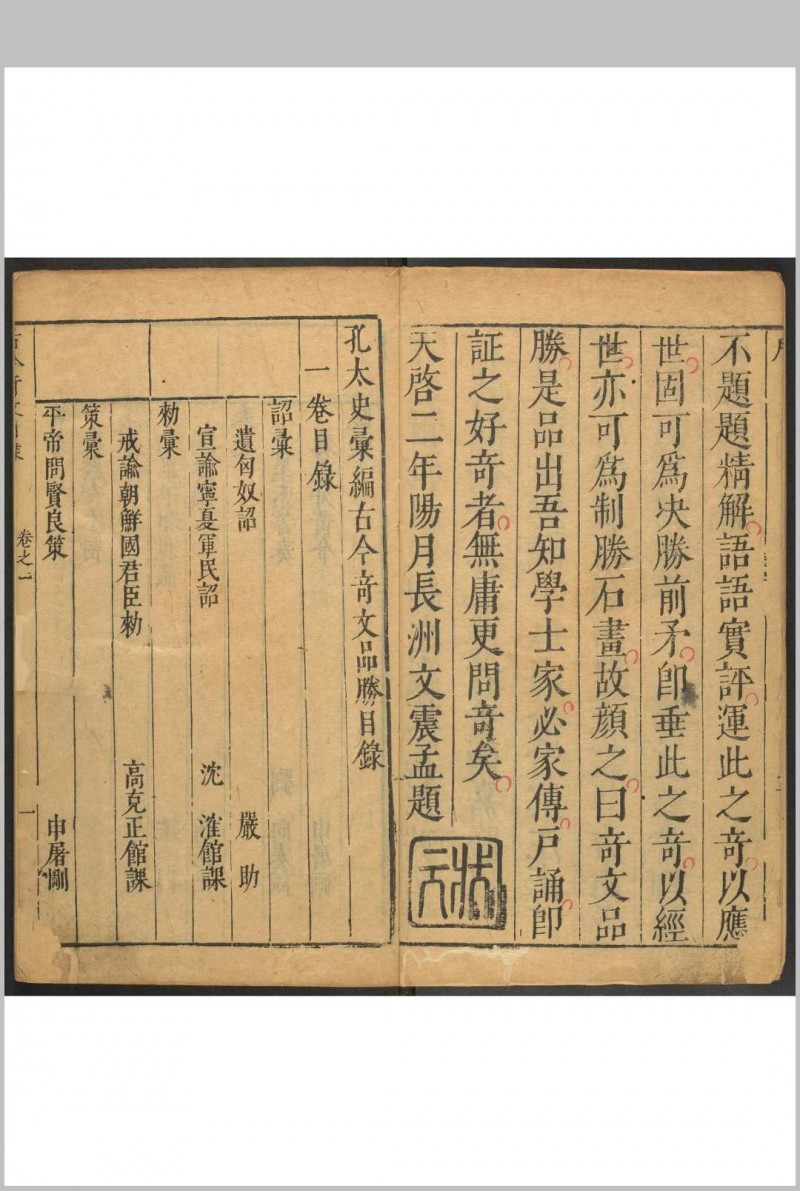 不題題精解語語實評運此之竒以應
世固可爲决勝前矛卽垂此之竒以經
世亦可爲制勝石畫故顔之曰竒文品
勝是品出吾知學士家必家傳戶誦卽
証之好竒者無庸更問竒矣
天啓二年陽月長洲文震孟題
狀元
孔太史彙編古今竒文品勝目錄
一卷目錄
詔彙
遺匈奴詔 嚴助
宣諭寧夏軍民詔 沈㴶館課
勑彙
戒諭朝鮮國君臣勑 高克正館課
策彙
平帝問賢良策 申屠剛
卷之一 一